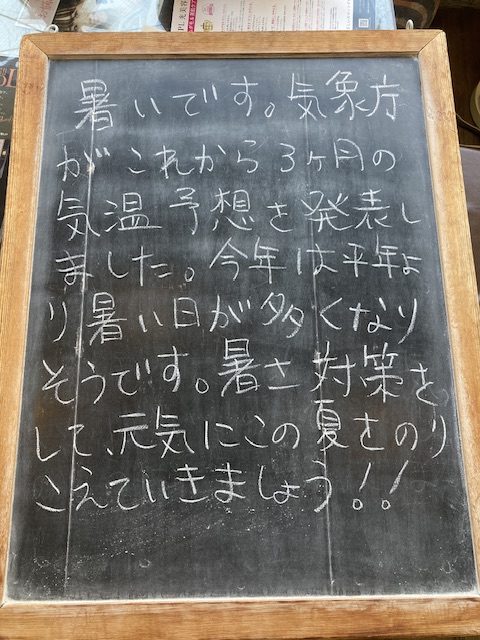 暑いです。気象庁
がこれから3ヶ月の
気温予想を発表し
ました。今年は平年よ
り暑い日が多くなり
そうです。暑さ対策を
して、元気にこの夏をのり
こえていきましょう!!